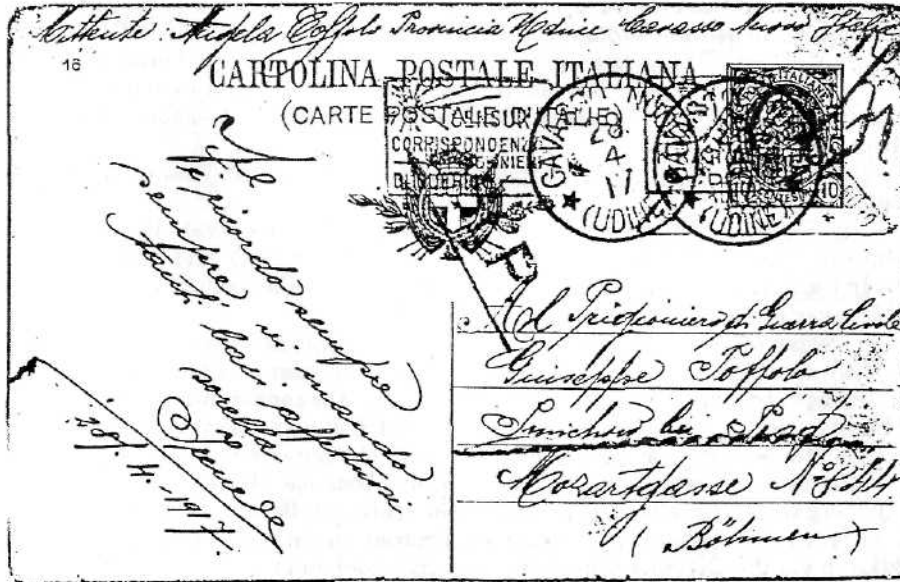 Mittente: Angela Toffolo Provincia Udine Cavasso Nuovo Italia
16
CARTOLINA POSTALE ITALIANA
(CARTE POSTALE D'ITALIE)
CENSURA
CORRISPONDENZA
PRIGIONIERI
DI GUERRA
CAVASSO NUOVO
28 4 17
(UDINE)
CAVASSO
(UDINE)
10
Te
ricordo sempre
sempre. vi mando
tanti baci affettuosi
sorella
28. 4. 1917.
Al Prigioniero di Guerra Civile
Guiseppe Toffolo
Smichow bei Prag
Mozartgasse N° 844
(Böhmen)